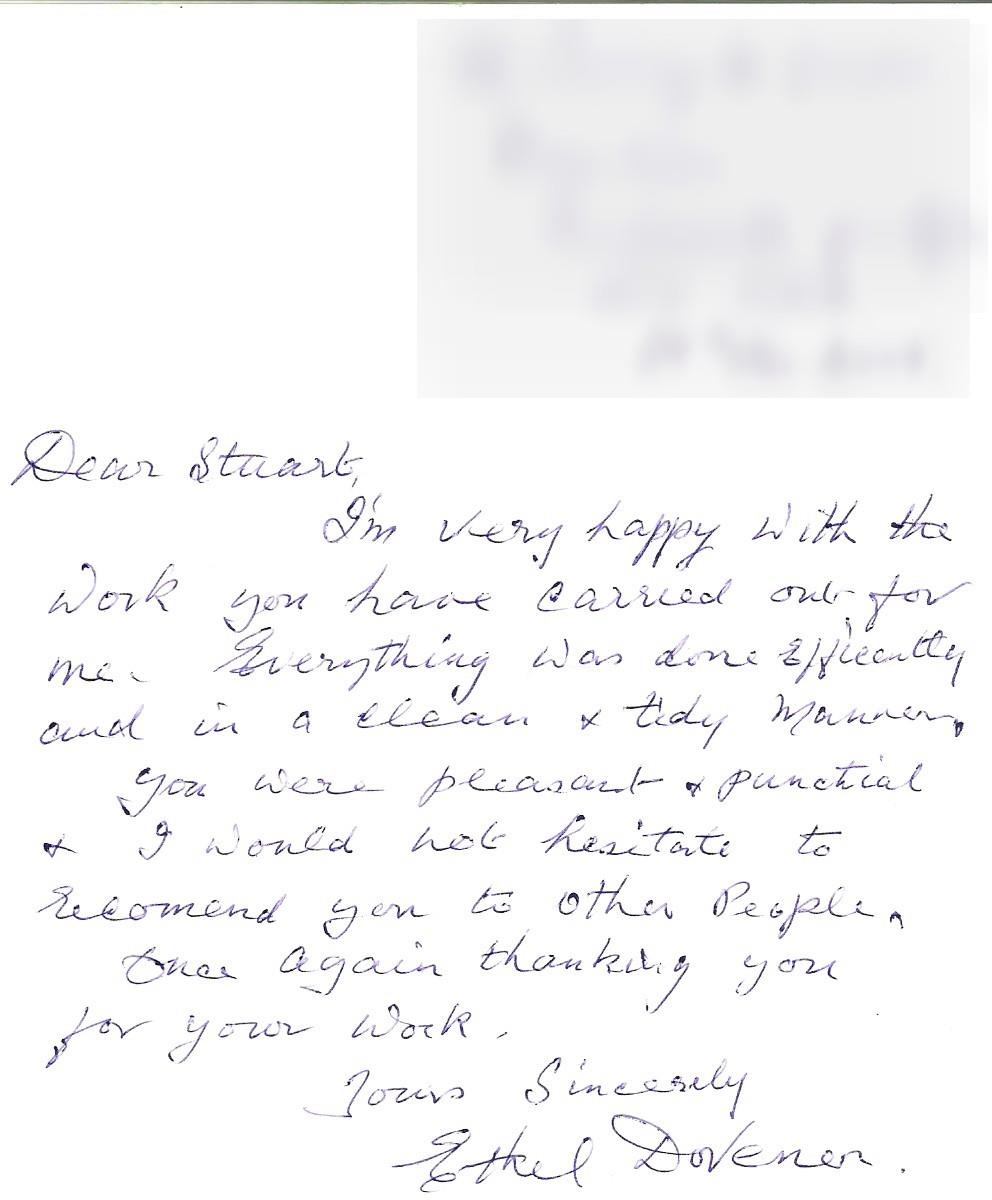 Dear Stuart,
I'm very happy with the
work you have carried out for
me. Everything was done Efficently
and in a clean & tidy Manner.
You were pleasant & punctial
& I would not hesitate to
recomend you to other People.
Once again thanking you
for your work.
Yours Sincerely
Ethel Dovener.